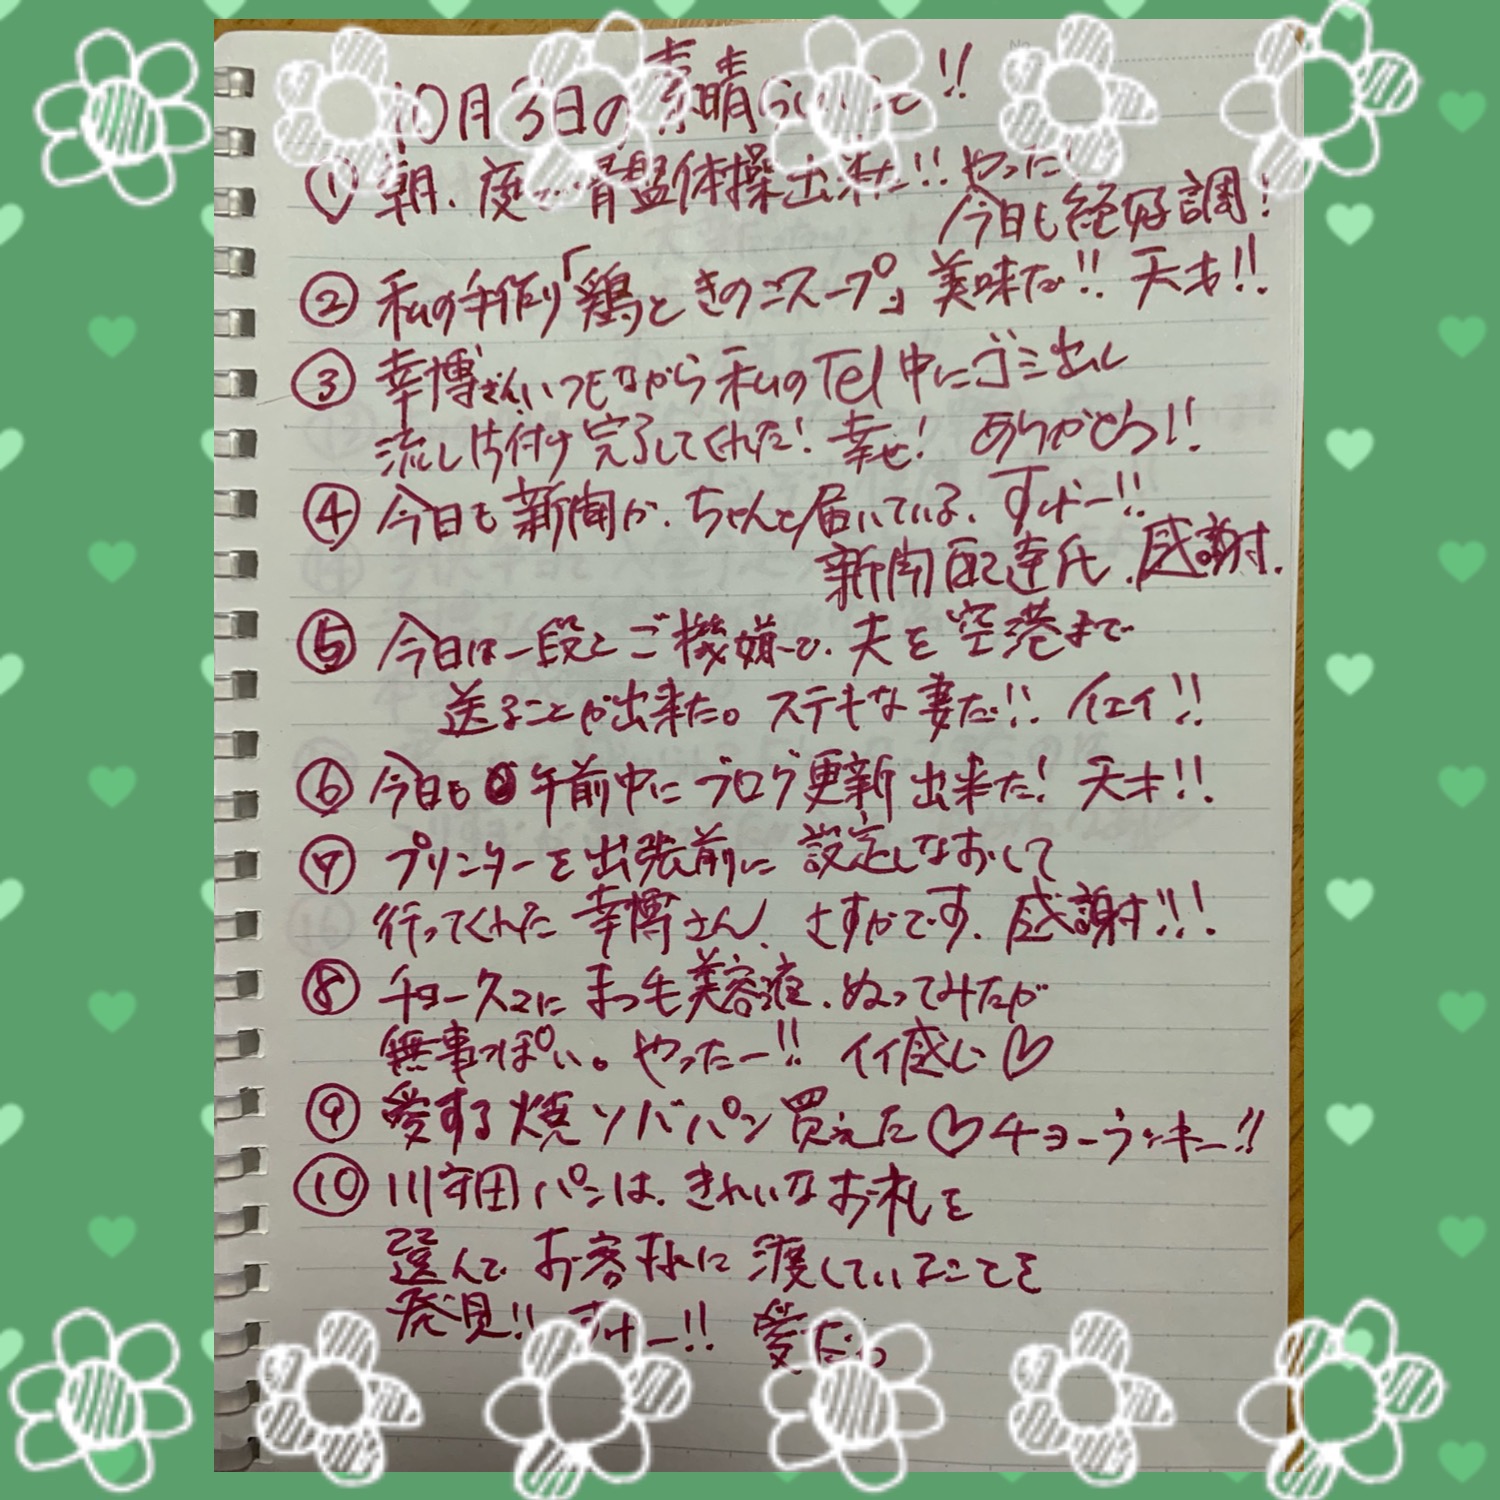 10月3日の素晴らしいこと!!
① 朝、度で骨盤体操出来た!! やった!
今日も絶好調!
② 私の手作り「鶏ときのこスープ」美味だ!! 天才!!
③ 幸博さん、いつもながら私のTel中にゴミ出し
流し片付け完了してくれた! 幸せ! ありがとう!!
④ 今日も新聞が、ちゃんと届いている、すげー!!
新聞配達氏、感謝。
⑤ 今日は一段とご機嫌で、夫を空港まで
送ることが出来た。ステキな妻だ!! イエイ!!
⑥ 今日も午前中にブログ更新出来た! 天才!!
⑦ プリンターを出張前に設定しなおして
行ってくれた幸博さん、さすがです、感謝!!!
⑧ チョー久々にまつ毛美容液、ぬってみたが
無事っぽい。やったー!! イイ感じ♡
⑨ 愛する焼ソバパン買えた♡チョーラッキー!!
⑩ 川守田パンは、きれいなお札を
選んでお客様に渡していることを
発見!! すげー!! 愛だっ